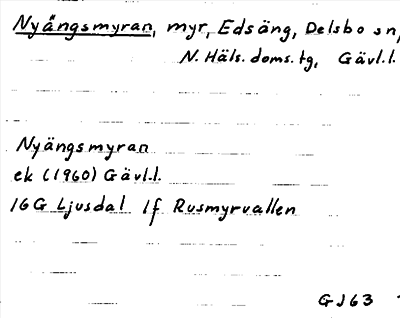 Nyängsmyran, myr, Edsäng, Delsbo sn,
N. Häls. doms. tg, Gävl.l.
Nyängsmyran
ek (1960) Gävl.l.
16G Ljusdal 1f Rusmyrvallen
GJ63